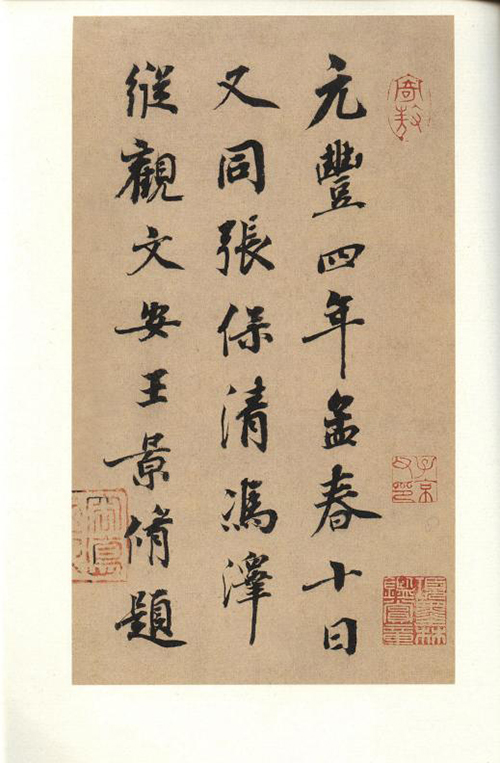 元豐四年孟春十日
又同張保清馮澤
縱觀文安王景脩題
子京父印